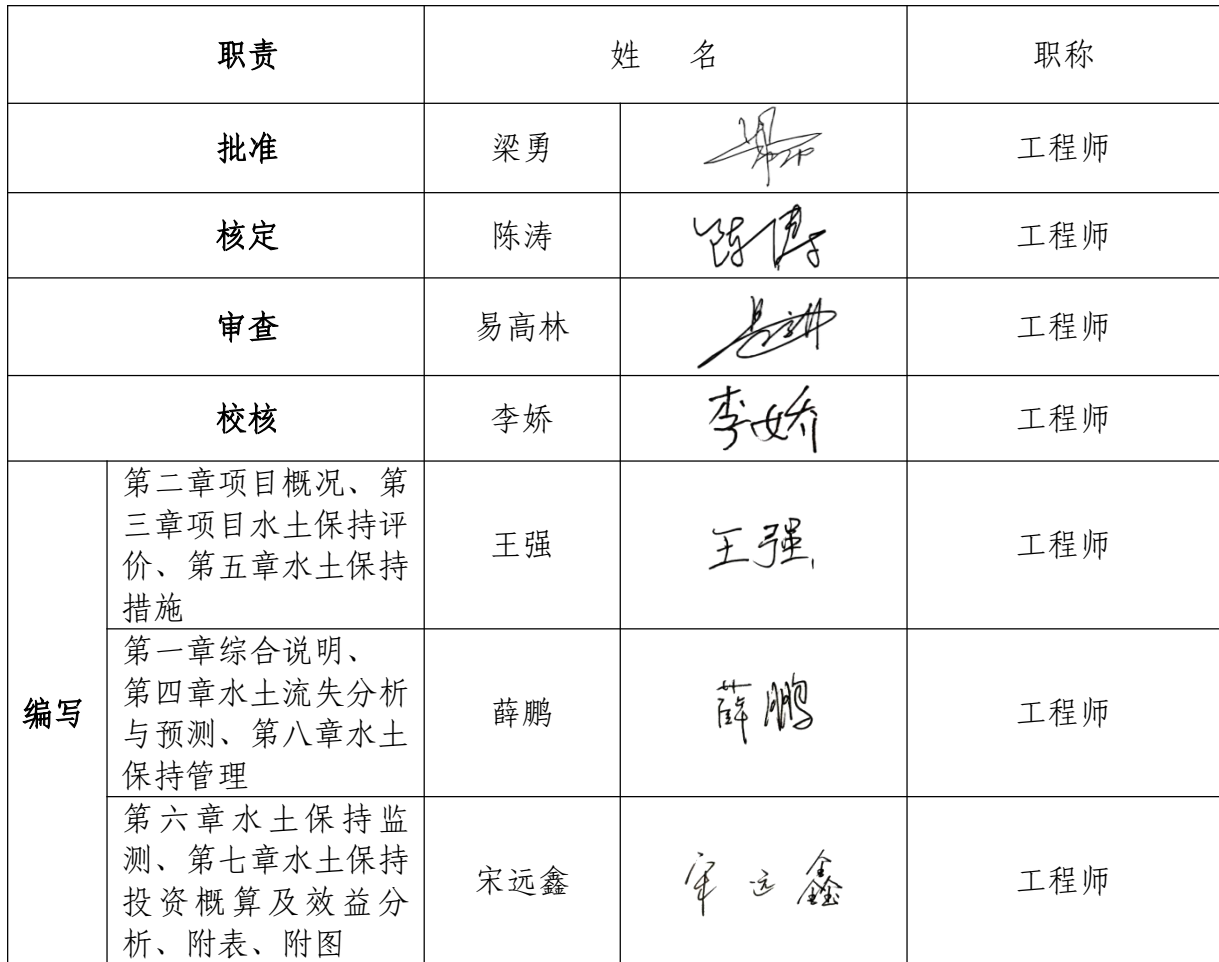 职责 姓 名 职称
批准 梁勇 工程师
核定 陈涛 陈涛 工程师
审查 易高林 工程师
校核 李娇 李娇 工程师
编写
第二章项目概况、第
三章项目水土保持评
价、第五章水土保持
措施
王强 王强 工程师
第一章综合说明、
第四章水土流失分析
与预测、第八章水土
保持管理
薛鹏 薛鹏 工程师
第六章水土保持监
测、第七章水土保持
投资概算及效益分
析、附表、附图
宋远鑫 宋远鑫 工程师